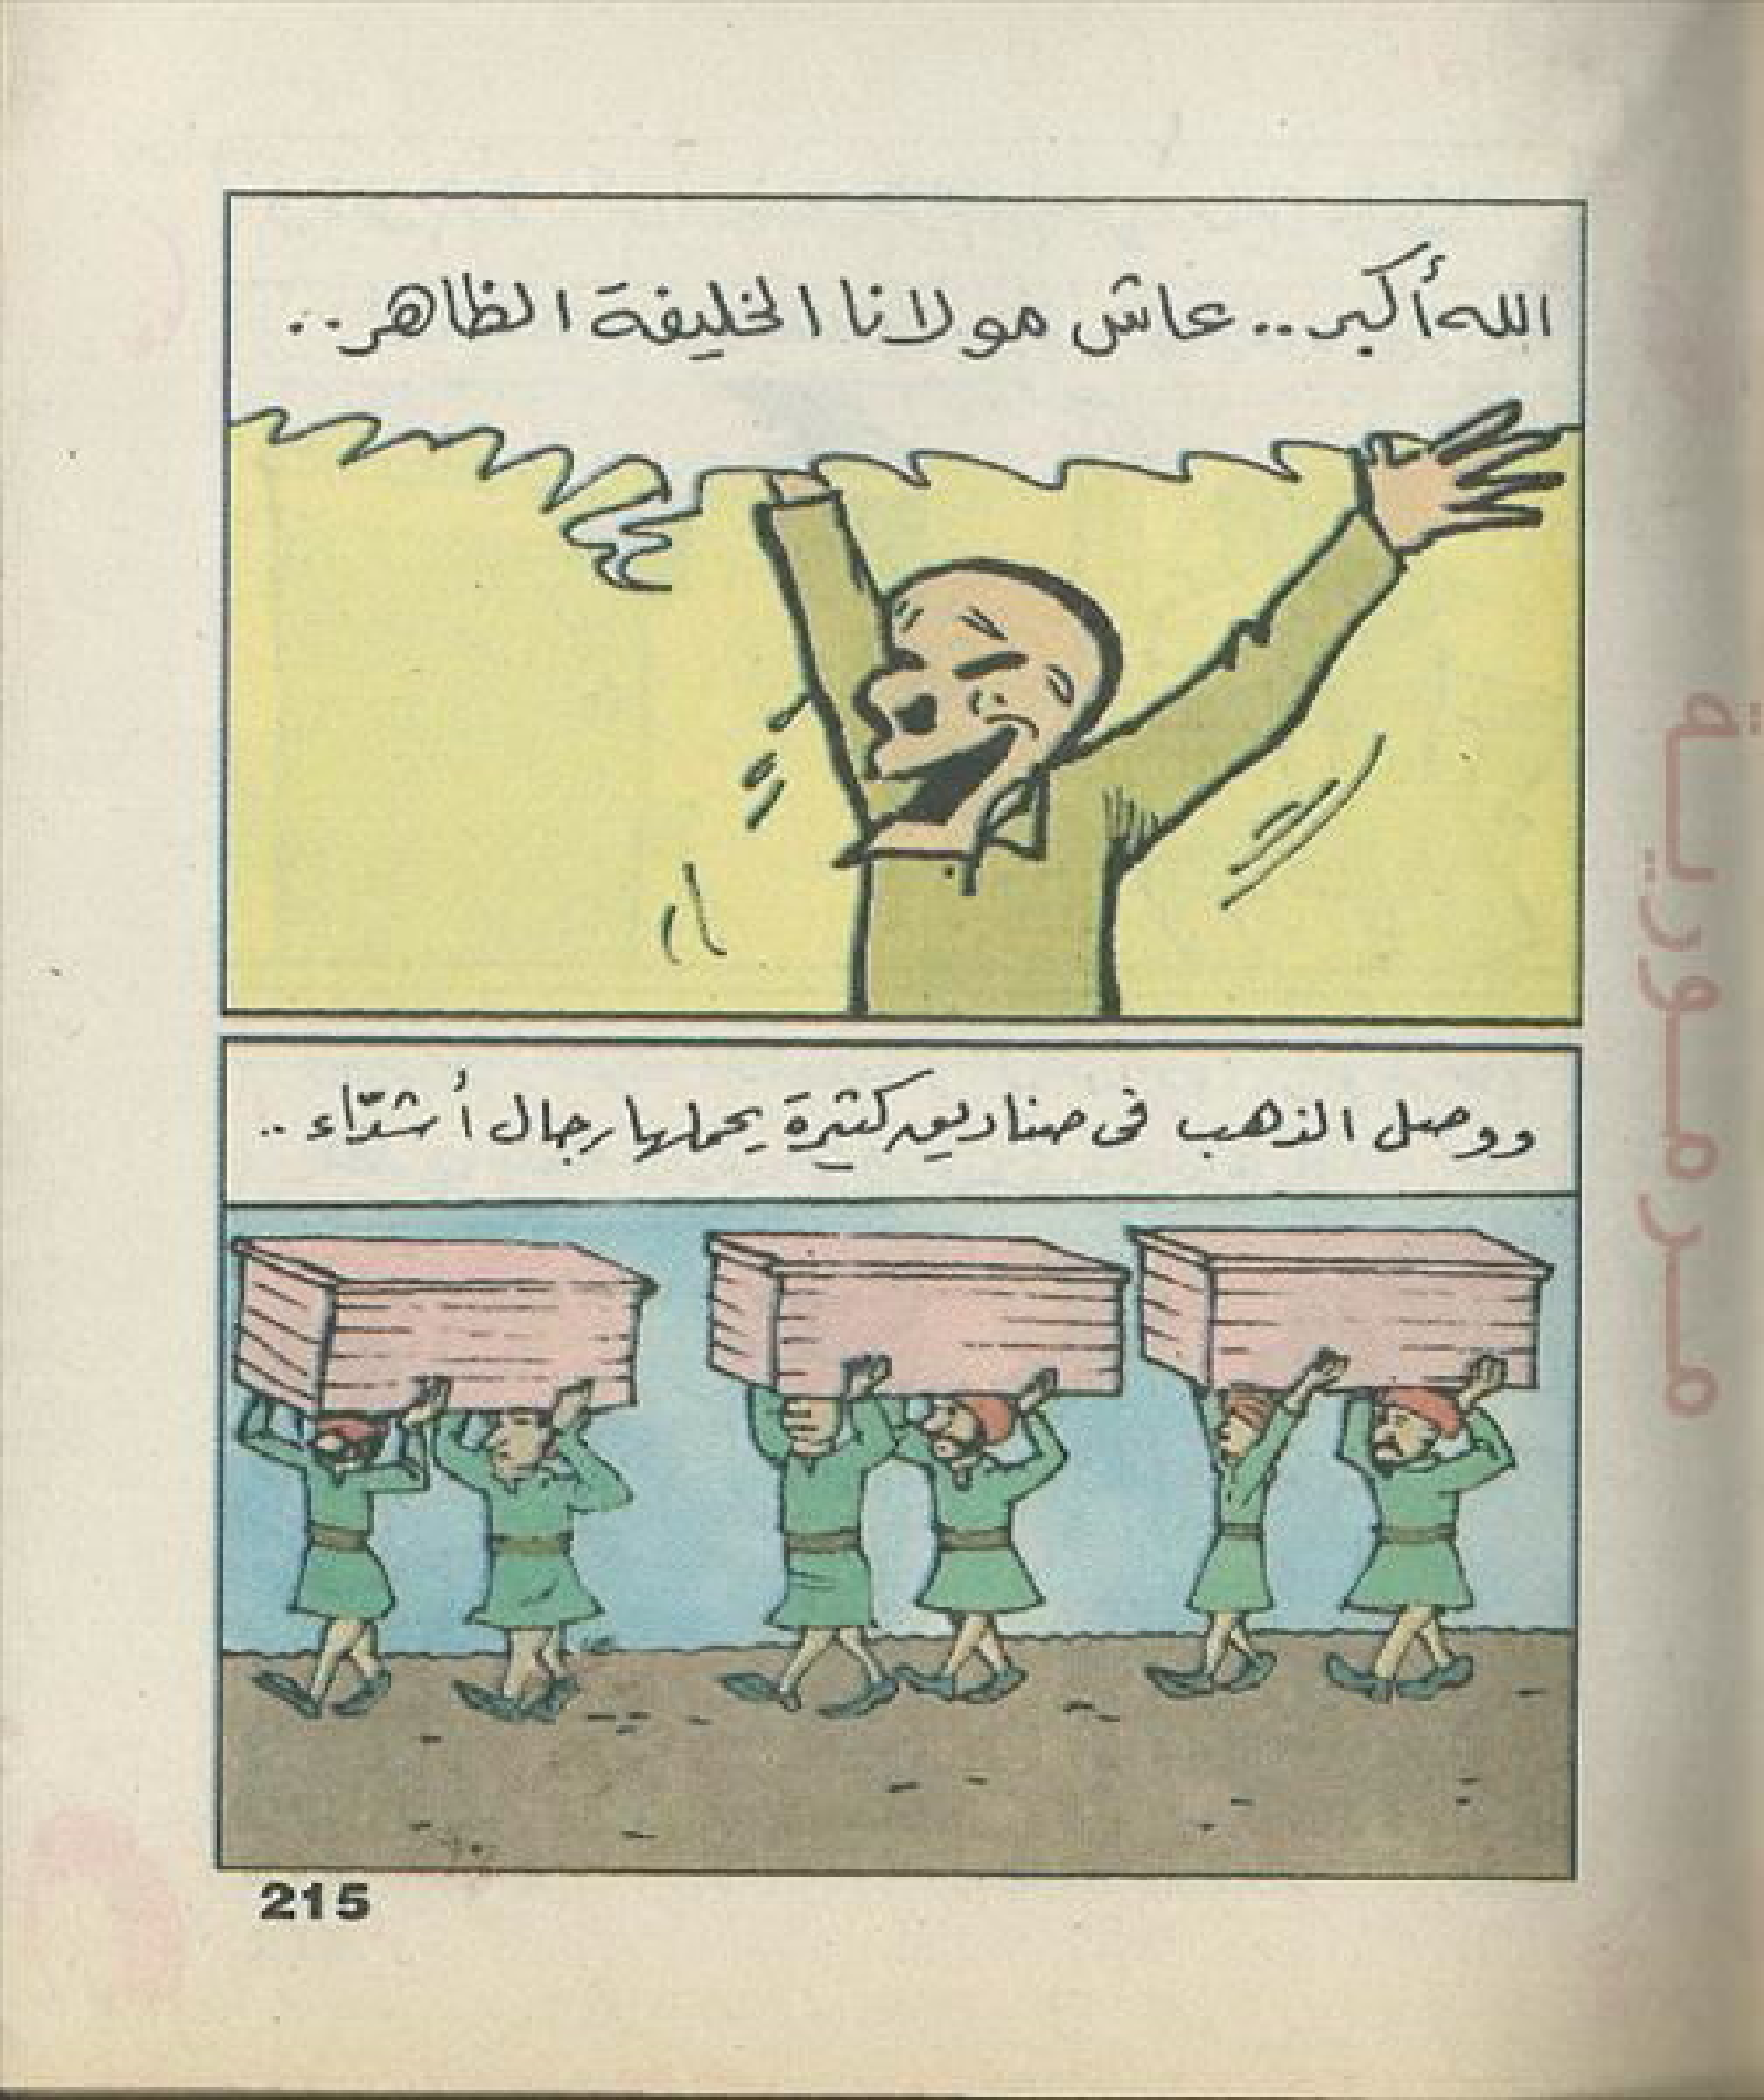 الله أكبر.. عاش مولانا الخليفة الظاهر..
ووصل الذهب فى صناديق كثيرة يحملها رجال أشدّاء ..
215
مرمورية